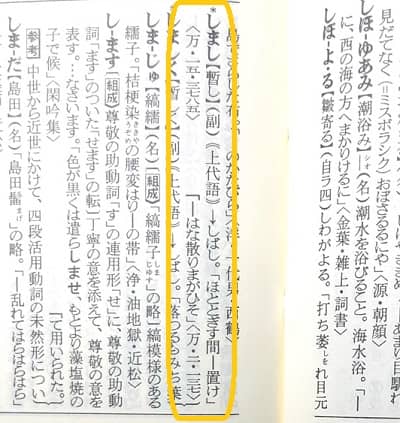 見だてなく(=ミスボラシク)おぼさるるにや」〈源・朝顔〉
しほ-ゆあみ【潮浴み】シオ(名)潮水を浴びること。海水浴。「―
に、西の海の方へまかりけるに」〈金葉・雑上・詞書〉
しほ-よ・る【皺寄る】(自ラ四)しわがよる。「打ち萎しをれ目元
*しまし【暫し】(副)《上代語》→しばし。「ほととぎす間―置け」
〈万・一五・三七八五〉
《上代語》→しばし。「
―はな散りまがひそ」〈万・二・一三七〉
しま-じゅ【縞繻】(名)[組成]「縞繻子しまじゆす」の略】縞模様のある
繻子。「桔梗染ききやうぞめの腰変はりの―の帯」〈浄・油地獄・近松〉
し-ます[組成]尊敬の助動詞「す」の連用形「せ」に、尊敬の助動
詞「ます」のついた「せます」の転】丁寧の意を添えて、尊敬の意を
表す。…なさいます。「色が黒くは遣らしませ、もとより藻塩焼の
子で候」〈閑吟集〉
参考 中世から近世にかけて、四段活用動詞の未然形につい
て用いられた。
しま-だ【島田】(名)「島田髷まげ」の略。「―乱れてはらはらはら」